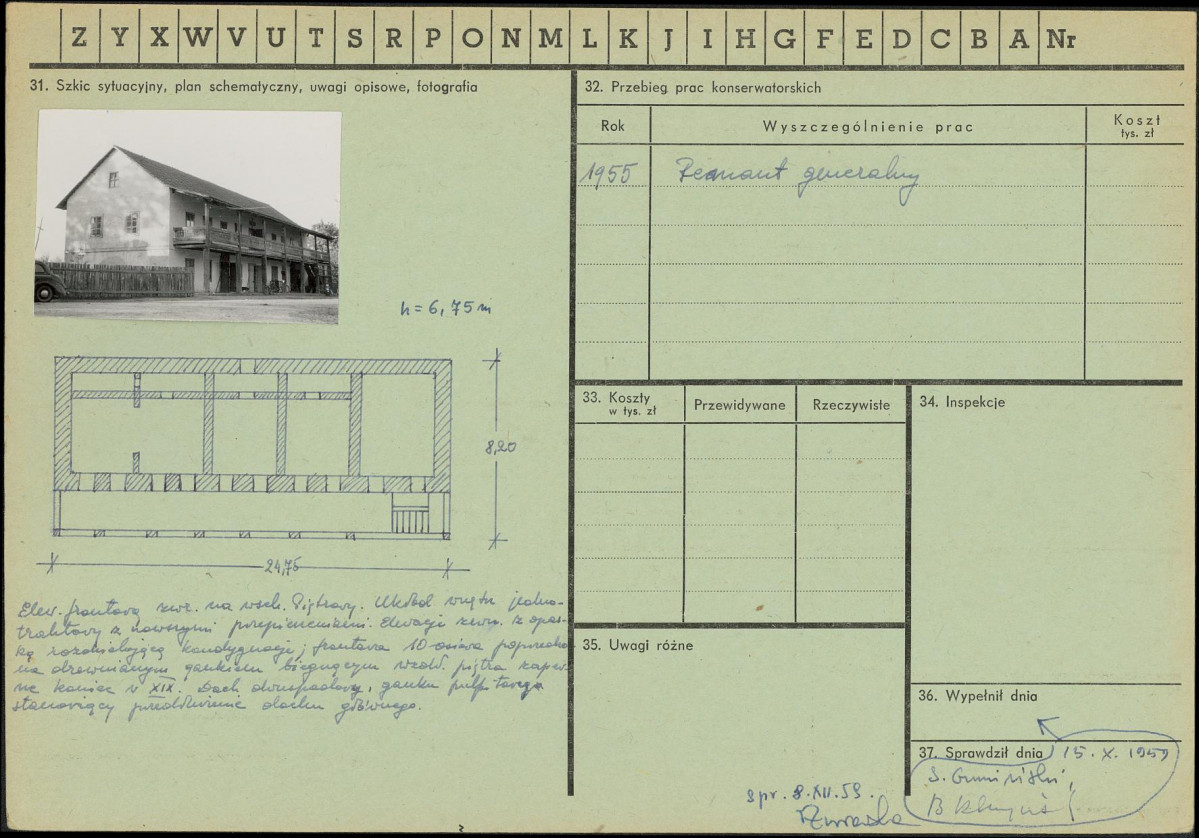 Z Y X W V U T S R P O N M L K J I H G F E D C B A Nr
31. Szkic sytuacyjny, plan schematyczny, uwagi opisowe, fotografia
h = 6,75 m
8,20
24,75
Elew. frontową zwr. na wsch. Piętrowy. Układ wnętrz jedno-
traktowy z nowszymi przepierzeniami. Elewacje zewn. z opas-
ką rozdzielającą kondygnacje; frontowa 10-osiowa poprzedzo-
na drewnianym gankiem biegnącym wzdł. piętra zapew-
ne koniec w XIX. Dach dwuspadowy, ganku pulpitowy
stanowiący przedłużenie dachu głównego.
32. Przebieg prac konserwatorskich
Rok Wyszczególnienie prac Koszt
tys. zł
1955 Remont generalny
33. Koszty
w tys. zł
Przewidywane Rzeczywiste
34. Inspekcje
35. Uwagi różne
36. Wypełnił dnia
37. Sprawdził dnia 15. X. 1959
spr. 8.XII.59.